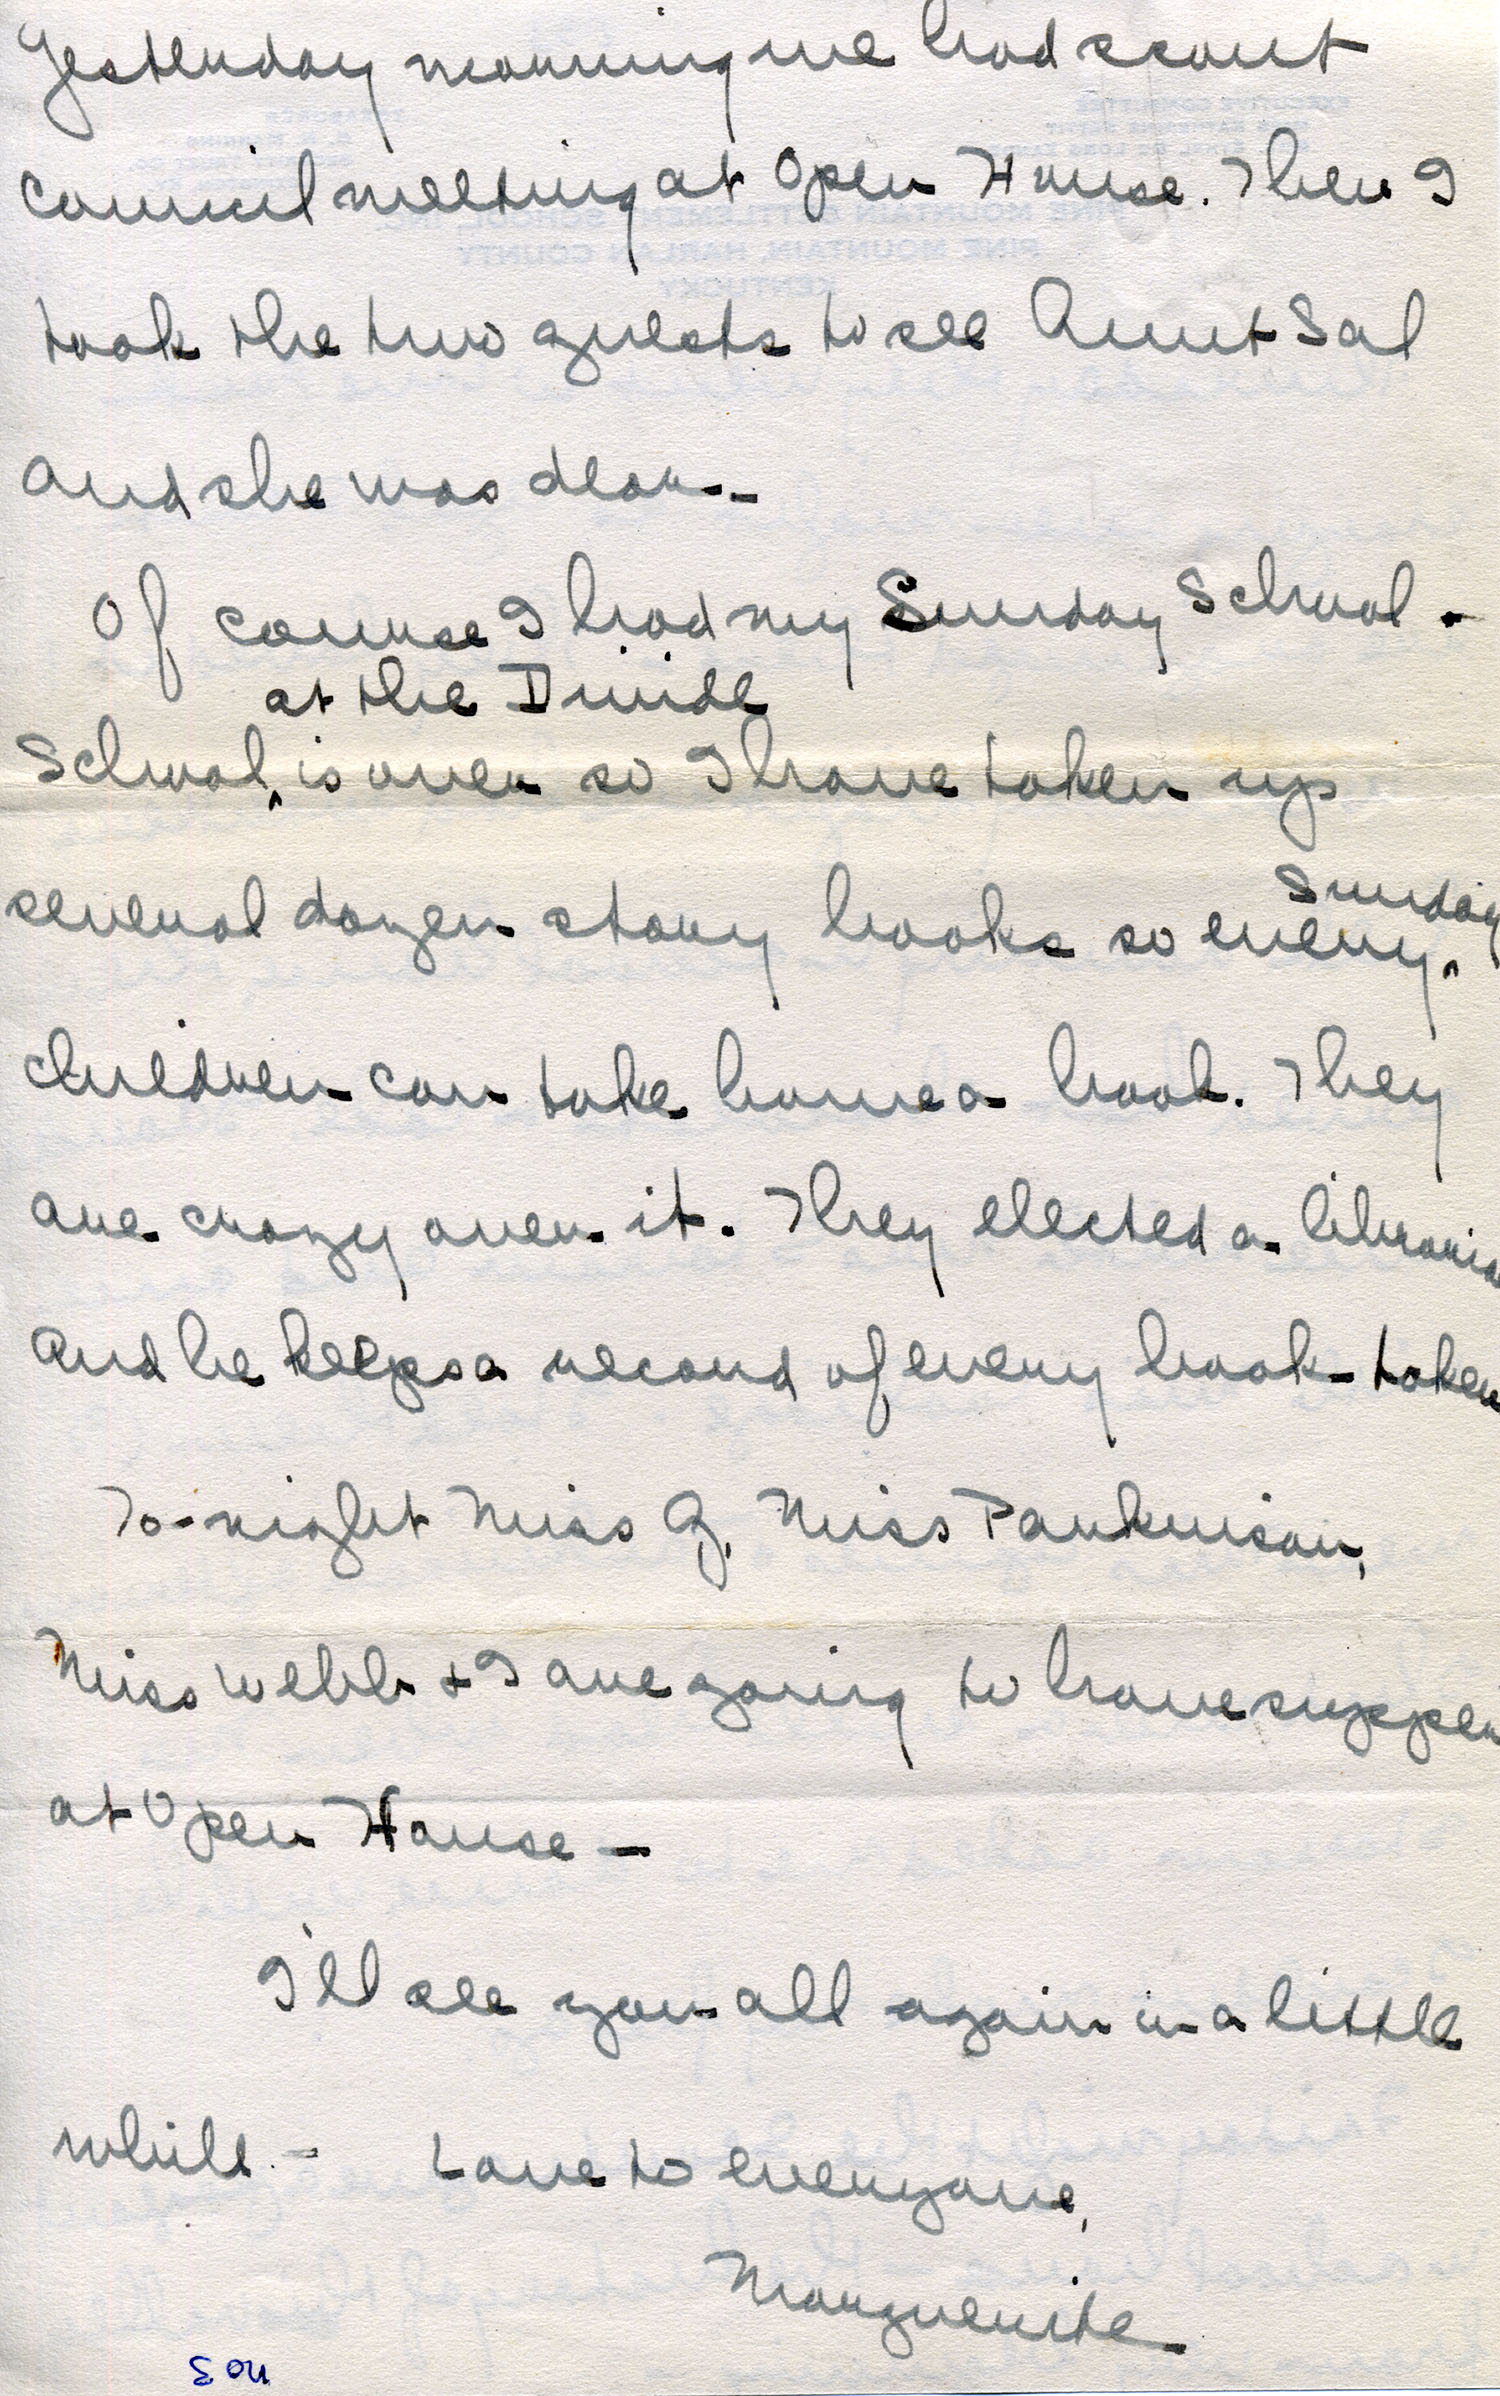 Yesterday morning we had scout
council meeting at Open House. Then I
took the two guests to see Aunt Sal
and she was dear.-
Of course I had my Sunday School.
at the Divide
School ‸ is over so I have taken up
Sunday
several dozen story books so every ‸
children can take home a book. They
are crazy over it. They elected a librarian
and he keeps a record of every book taken
To-night Miss G, Miss Parkinson,
Miss Webb + I are going to have supper
at Open House —
I'll see you all again in a little
while - Love to everyone,
Marguerite
no 3
PINE MOUNTAIN SETTLEMENT SCHOOL, INC.
PINE MOUNTAIN, HARLAN COUNTY
KENTUCKY
EXECUTIVE COMMITTEE
TREASURER